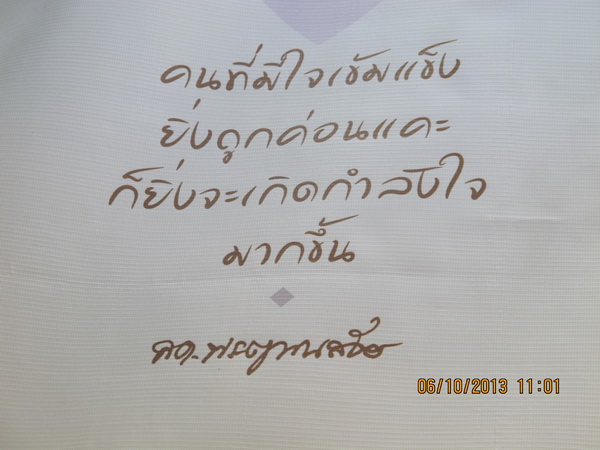 คนที่มีใจเข้มแข็ง
ยิ่งถูกค่อนแคะ
ก็ยิ่งจะเกิดกำลังใจ
มากขึ้น
06/10/2013 11:01